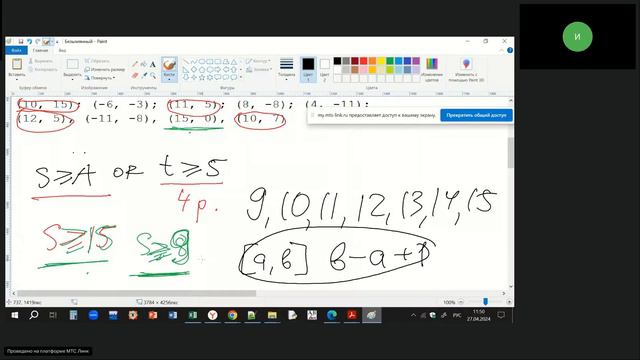 Безымянный - Paint
Файл Главная Вид
Вставить Вырезать Копировать Выделить Обрезать Изменить размер Повернуть Кисти Толщина Цвет 1 Цвет 2 Изменение цветов Изменить с помощью Paint 3D
Буфер обмена Изображение Инструменты Фигуры Цвета
И
(10, 15); (-6, -3); (11, 5); (8, -8); (4, -11);
(12, 5), (-11, -8), (15, 0), (10, 7)
my.mts-link.ru предоставляет доступ к вашему экрану.
Прекратить общий доступ
s≥A OR t≥5
4 р.
9, 10, 11, 12, 13, 14, 15
s≥15 s≥8
[a, b] b-a+1
737, 1419пкс 3784 × 4256пкс 100%
РУС 11:50
27.04.2024
Проведено на платформе МТС Линк